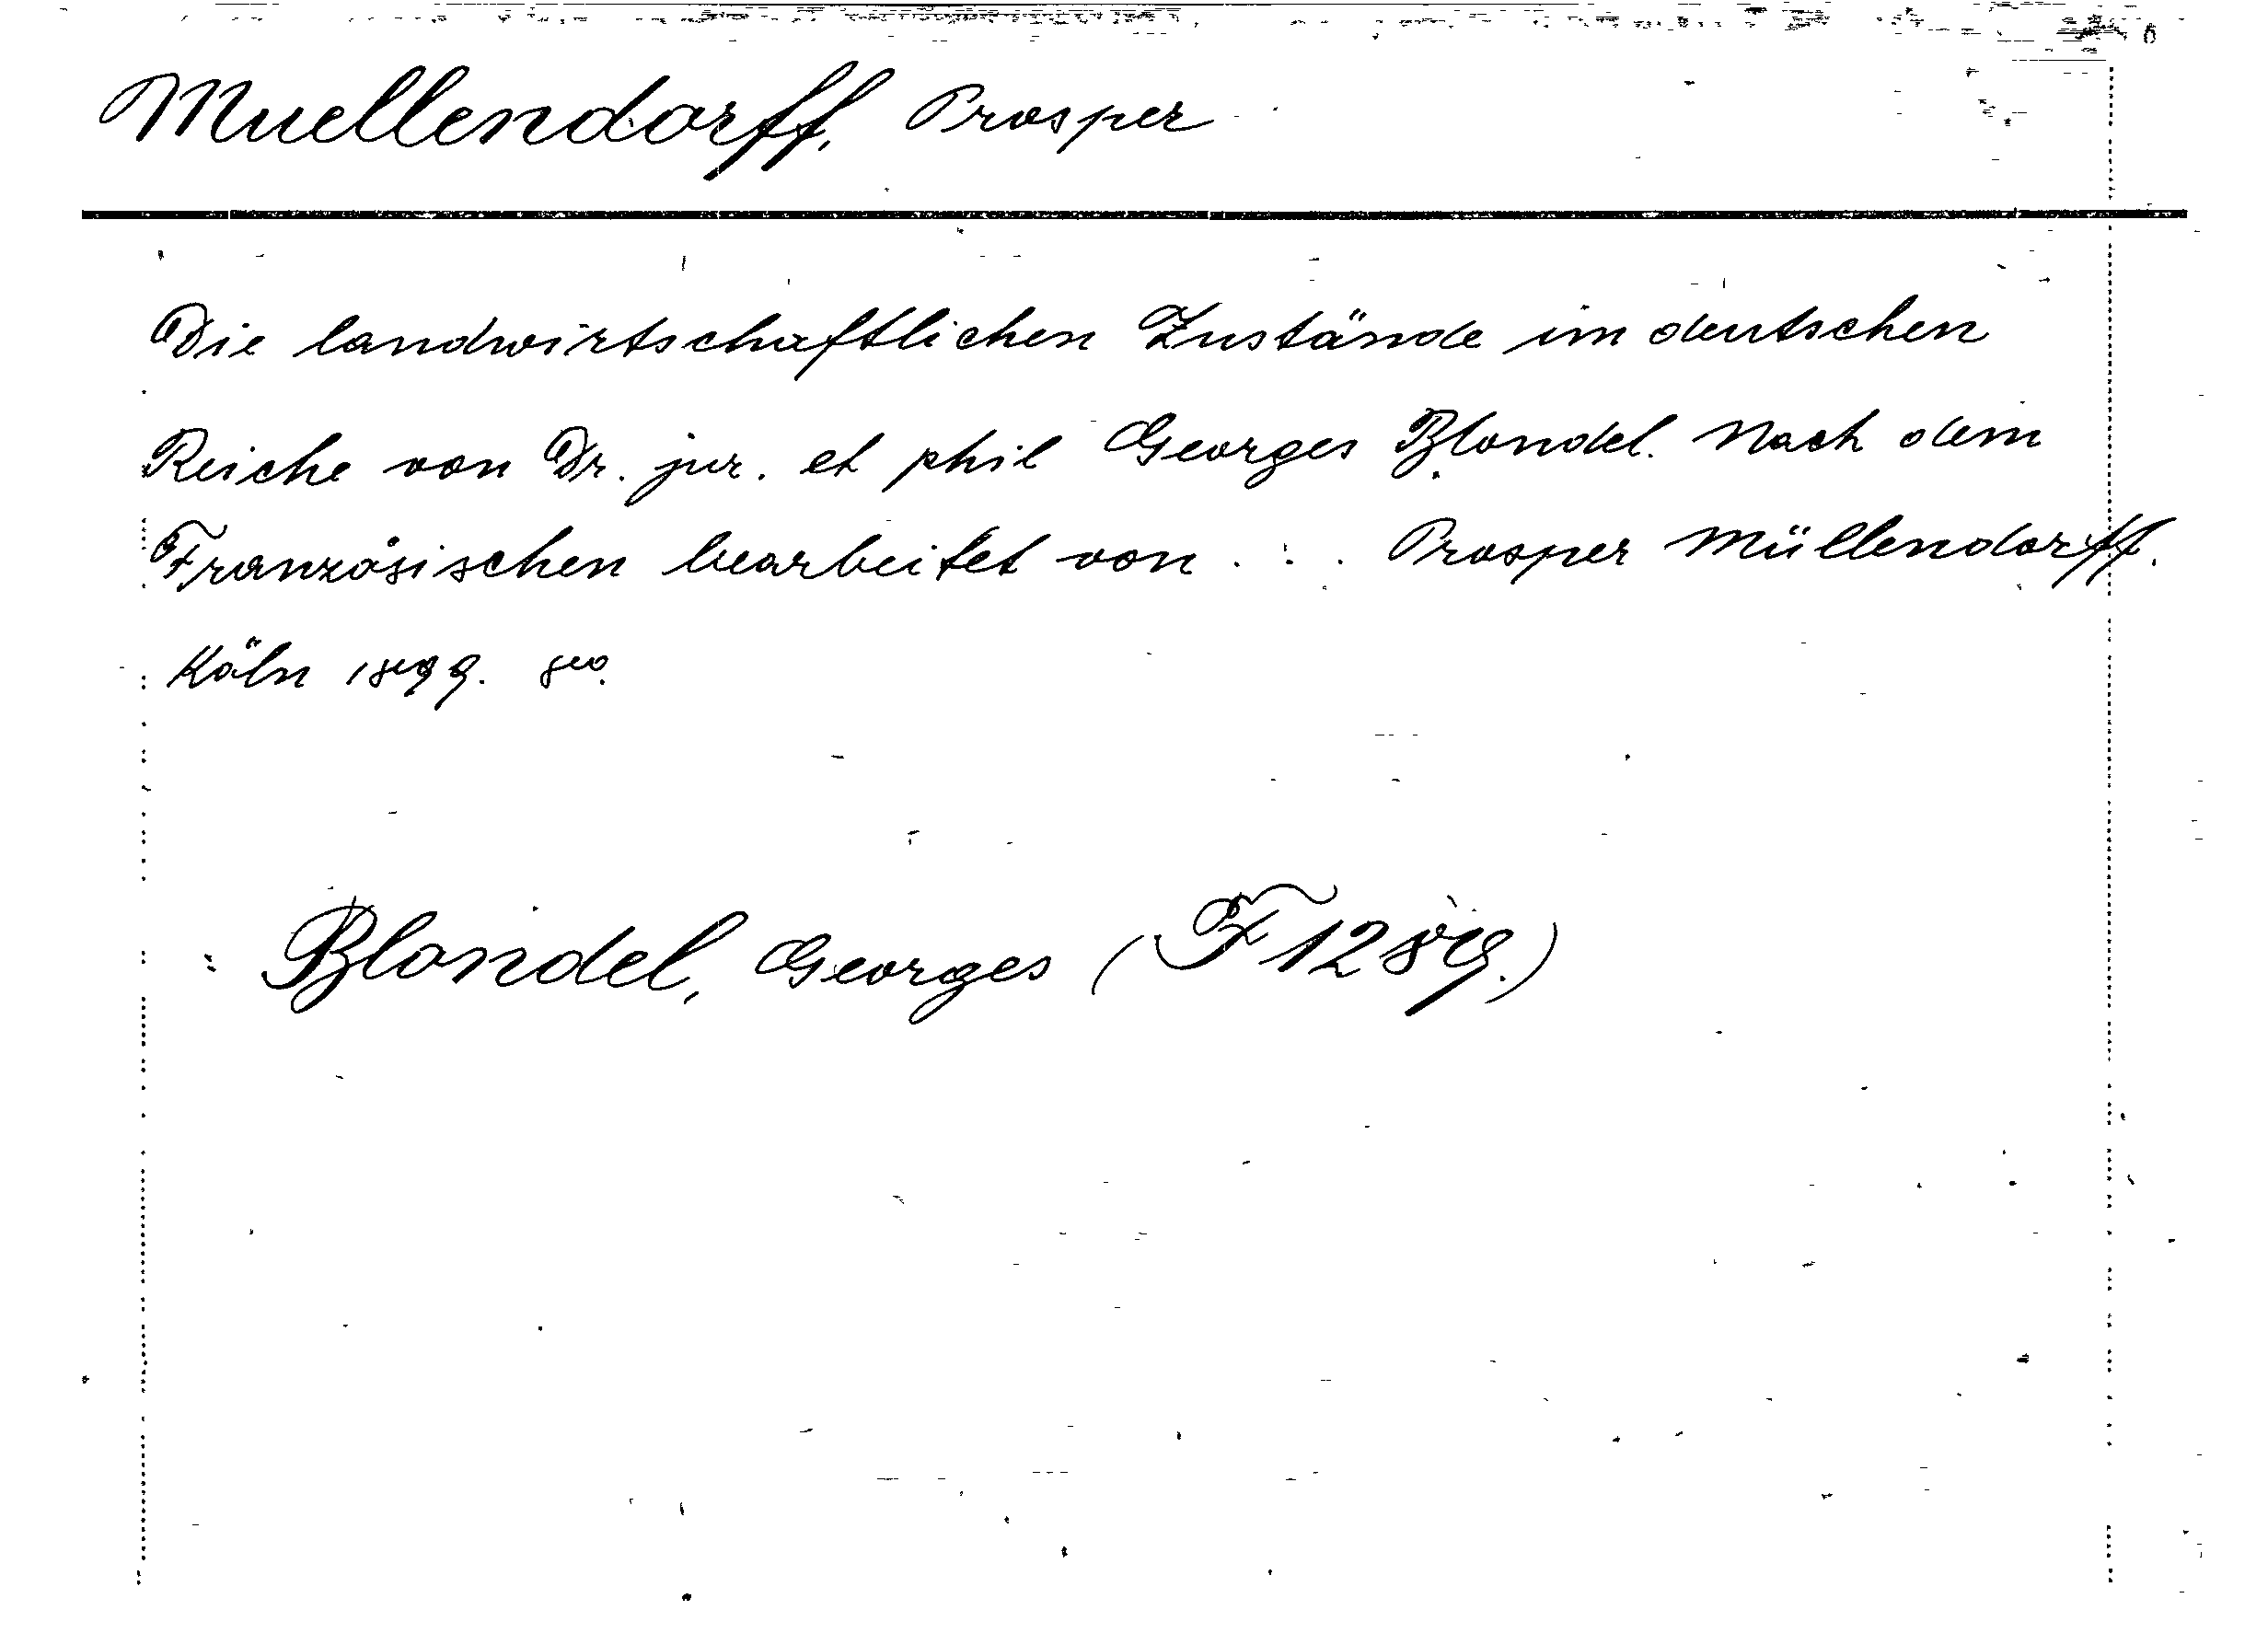 Muellendorff, Prosper
Die landwirtschaftlichen Zustände im deutschen
Reiche von Dr. jur. et phil Georges Blondel. Nach dem
Französischen bearbeitet von . . . Prosper Müllendorff.
Köln 1899. 8vo.
Blondel, Georges (F 1289.)